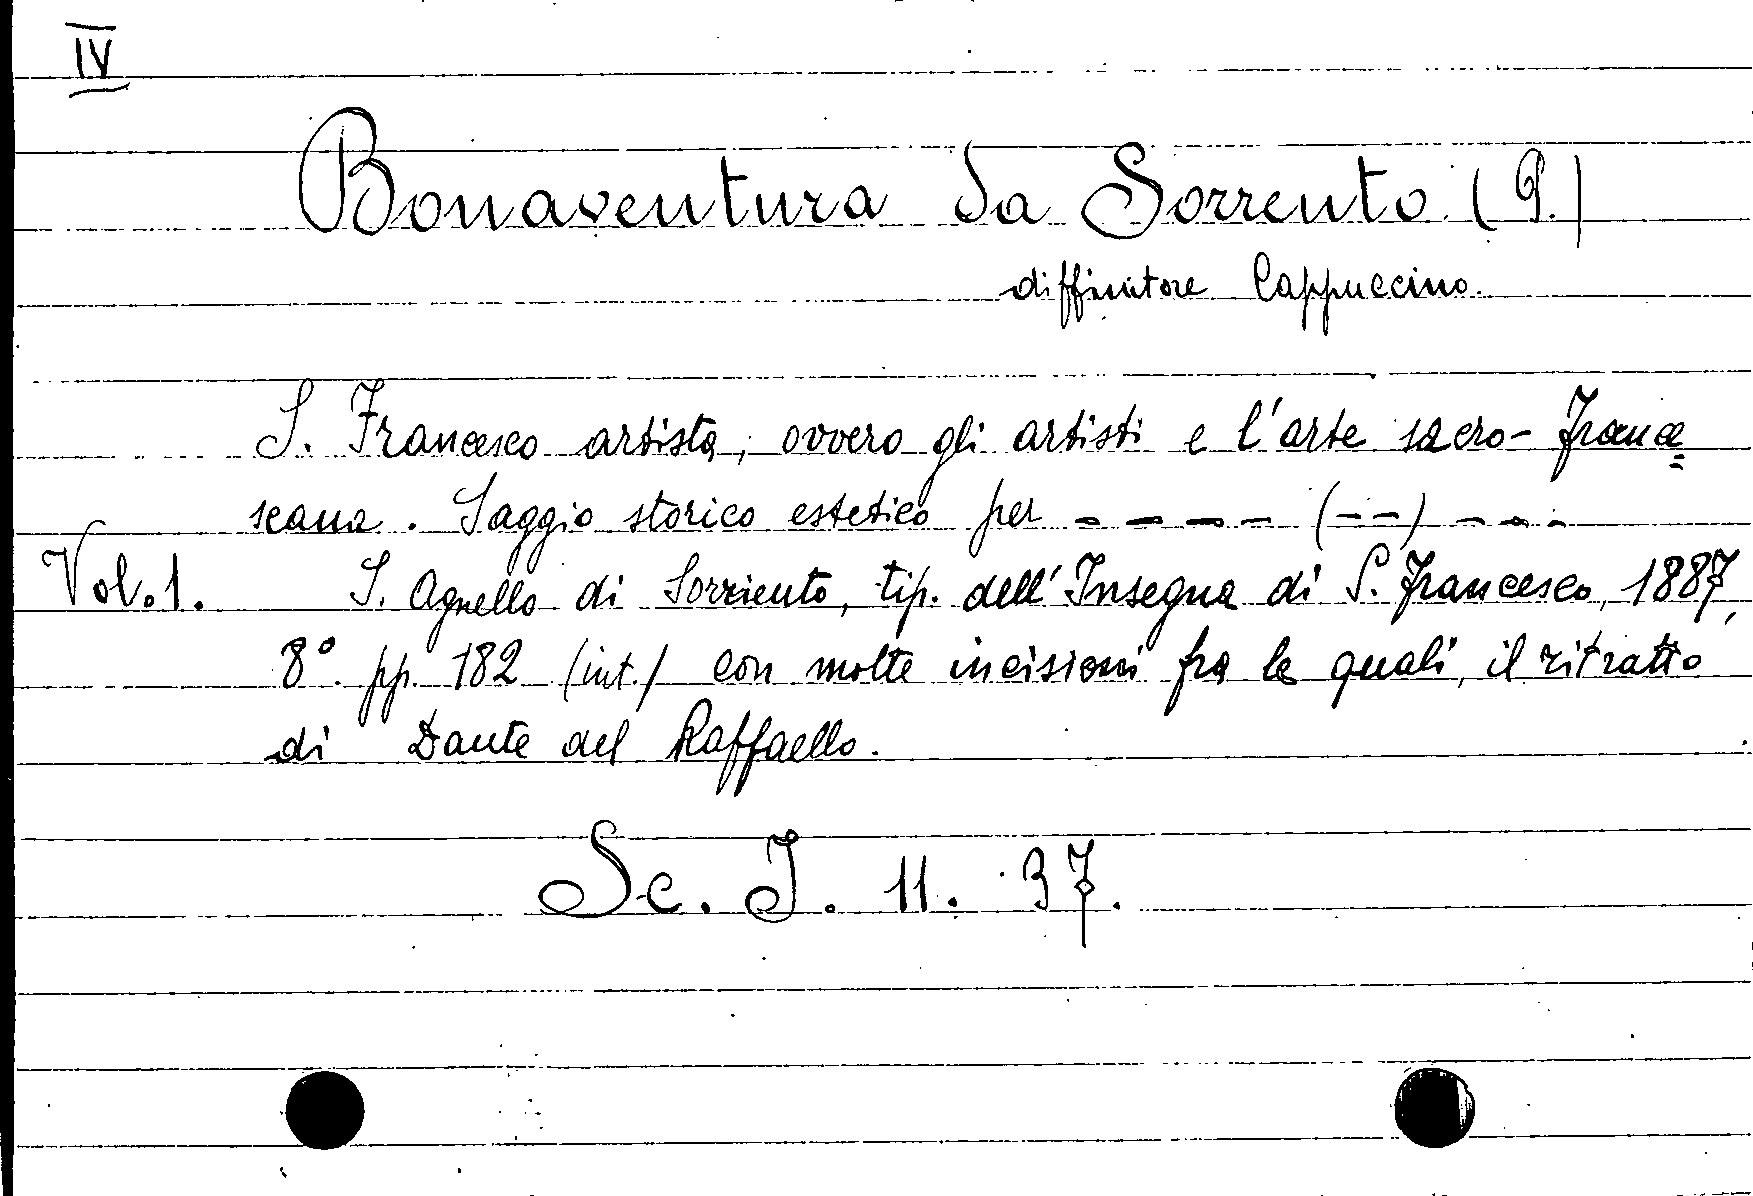 IV
Bonaventura da Sorrento (P.)
diffinitore Cappuccino.
S. Francesco artista, ovvero gli artisti e l'arte sacro-france=
scana. Saggio storico estetico per – – – – – (– –) – – – –
Vol. 1. S. Agnello di Sorriento, tip. dell'Insegna di S. Francesco, 1887,
8° pp. 182 (int.) con molte incisioni fra le quali, il ritratto
di Dante del Raffaello.
Sc. I. 11. 37.